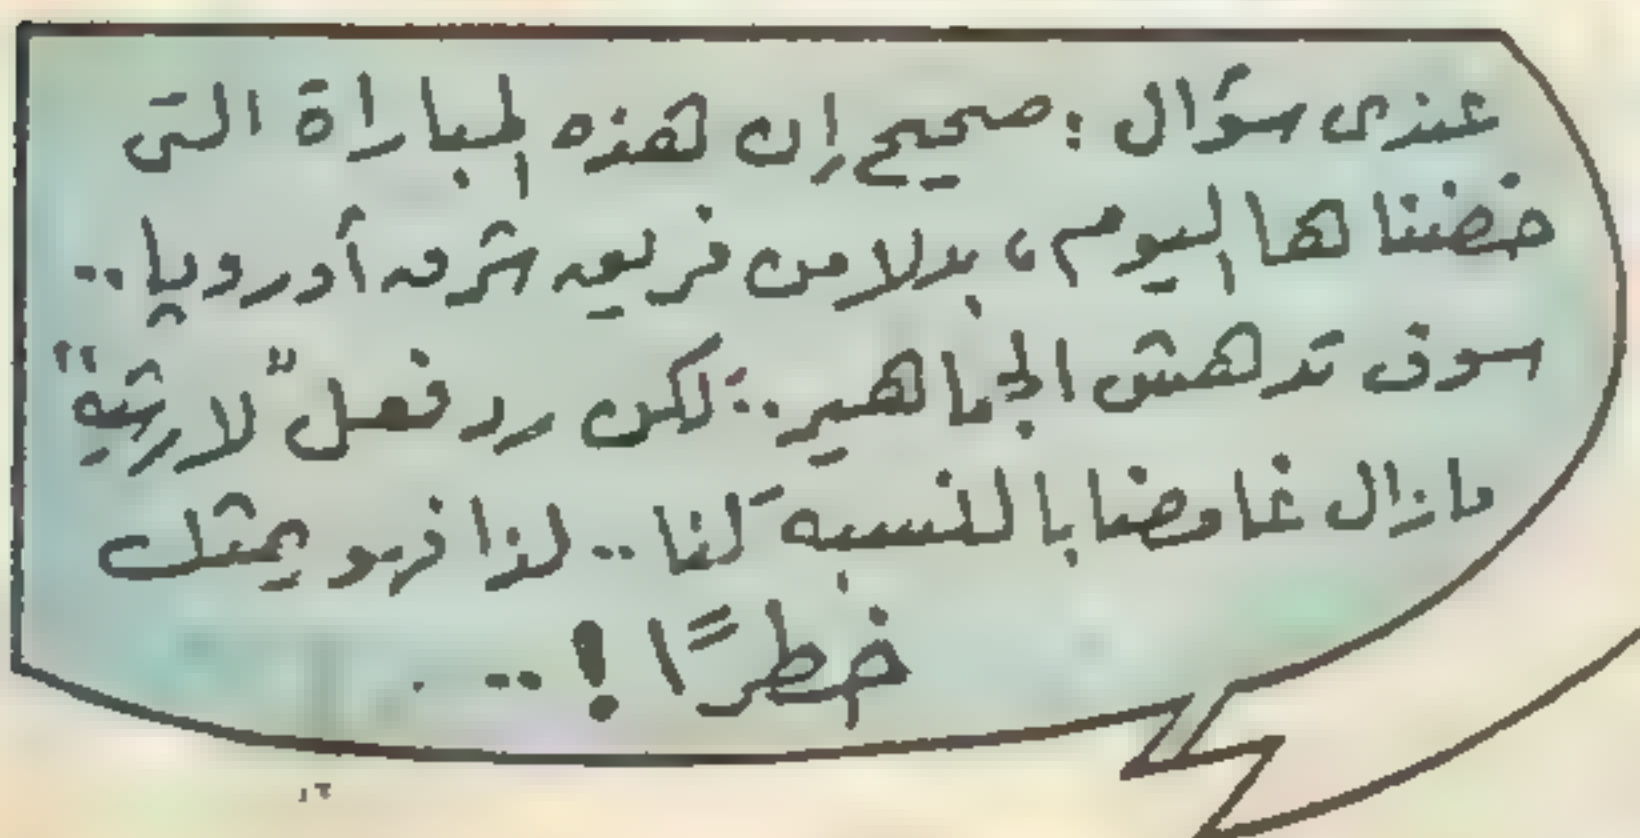 عندى سؤال : صحيح إن هذه المباراة التى
خضناها اليوم ، بدلا من فريق شرق أوروبا ..
سوف تدهش الجماهير .. لكن رد فعل "لارشيه"
مازال غامضا بالنسبة لنا .. لذا فهو يمثل
خطرًا ! ..